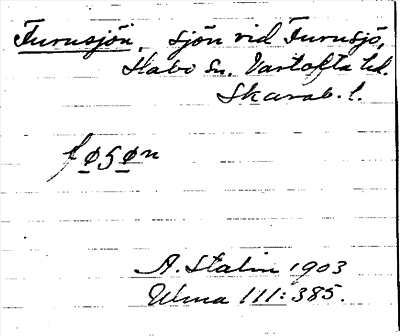 Furusjön, sjön vid Furusjö,
Habo sn. Vartofta hd.
Skarab. l.
føsøn
A. Stalin 1903
Ulma 111:385.